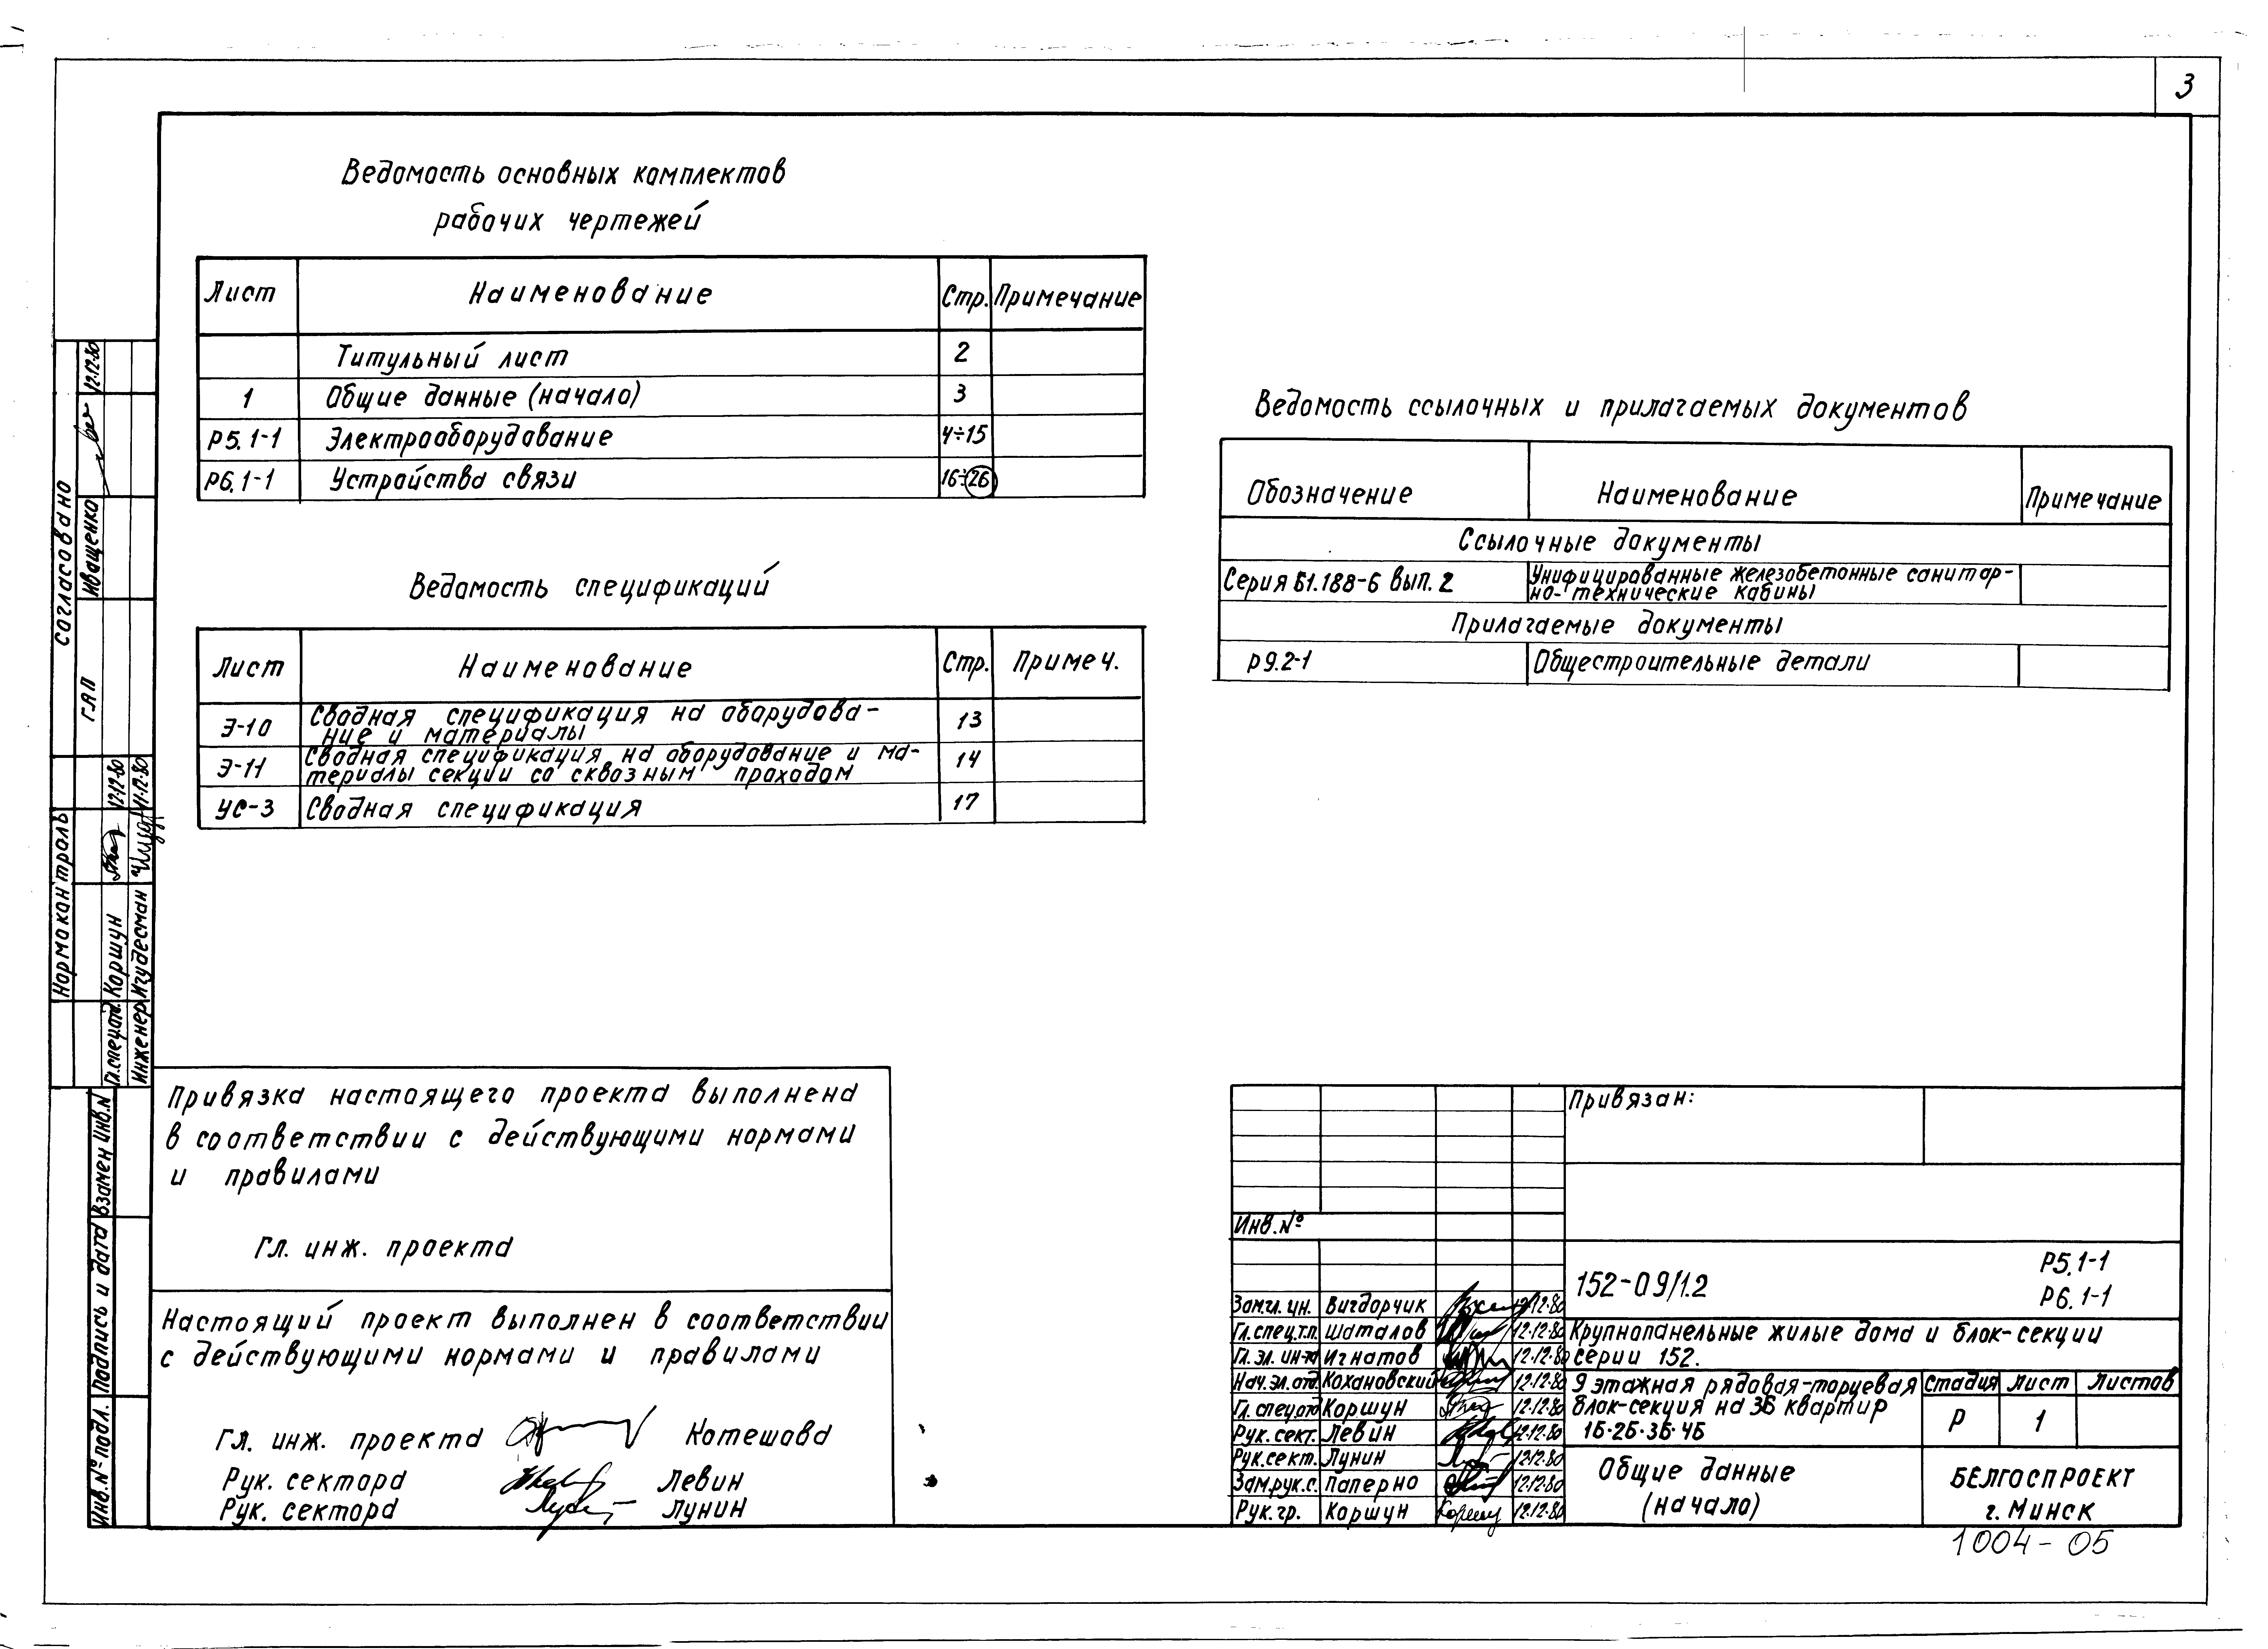 3
Ведомость основных комплектов
рабочих чертежей
Лист Наименование Стр. Примечание
Титульный лист 2
1 Общие данные (начало) 3
Р5.1-1 Электрооборудование 4÷15
Р6.1-1 Устройства связи 16÷26
Ведомость спецификаций
Лист Наименование Стр. Примеч.
Э-10 Сводная спецификация на оборудова-
ние и материалы 13
Э-11 Сводная спецификация на оборудование и ма-
териалы секции со сквозным проходом 14
УС-3 Сводная спецификация 17
Ведомость ссылочных и прилагаемых документов
Обозначение Наименование Примечание
Ссылочные документы
Серия Б1.188-6 вып. 2 Унифицированные железобетонные санитар-
но-технические кабины
Прилагаемые документы
Р9.2-1 Общестроительные детали
Согласовано
ГАП Иващенко 12.12.80
Нормоконтроль
Гл.спец.отд. Коршун 12.12.80
Инженер Игудесман 11.12.80
Взамен инв.N
Подпись и дата
Инв.№ подл.
Привязка настоящего проекта выполнена
в соответствии с действующими нормами
и правилами
Гл. инж. проекта
Настоящий проект выполнен в соответствии
с действующими нормами и правилами
Гл. инж. проекта Котешова
Рук. сектора Левин
Рук. сектора Лунин
Привязан:
Инв.№
152-09/1.2 Р5.1-1
Р6.1-1
Зам.гл.ин. Вигдорчик 12.12.80
Гл.спец.т.п. Шаталов 12.12.80
Гл.эл.ин-та Игнатов 12.12.80
Нач.эл.отд. Кохановский 12.12.80
Гл.спец.отд Коршун 12.12.80
Рук.сект. Левин 12.12.80
Рук.сект. Лунин 12.12.80
Зам.рук.с. Паперно 12.12.80
Рук.гр. Коршун 12.12.80
Крупнопанельные жилые дома и блок-секции
серии 152.
9 этажная рядовая-торцевая
блок-секция на 36 квартир
1Б·2Б·3Б·4Б
Стадия Лист Листов
Р 1
Общие данные
(начало)
БЕЛГОСПРОЕКТ
г. Минск
1004-05